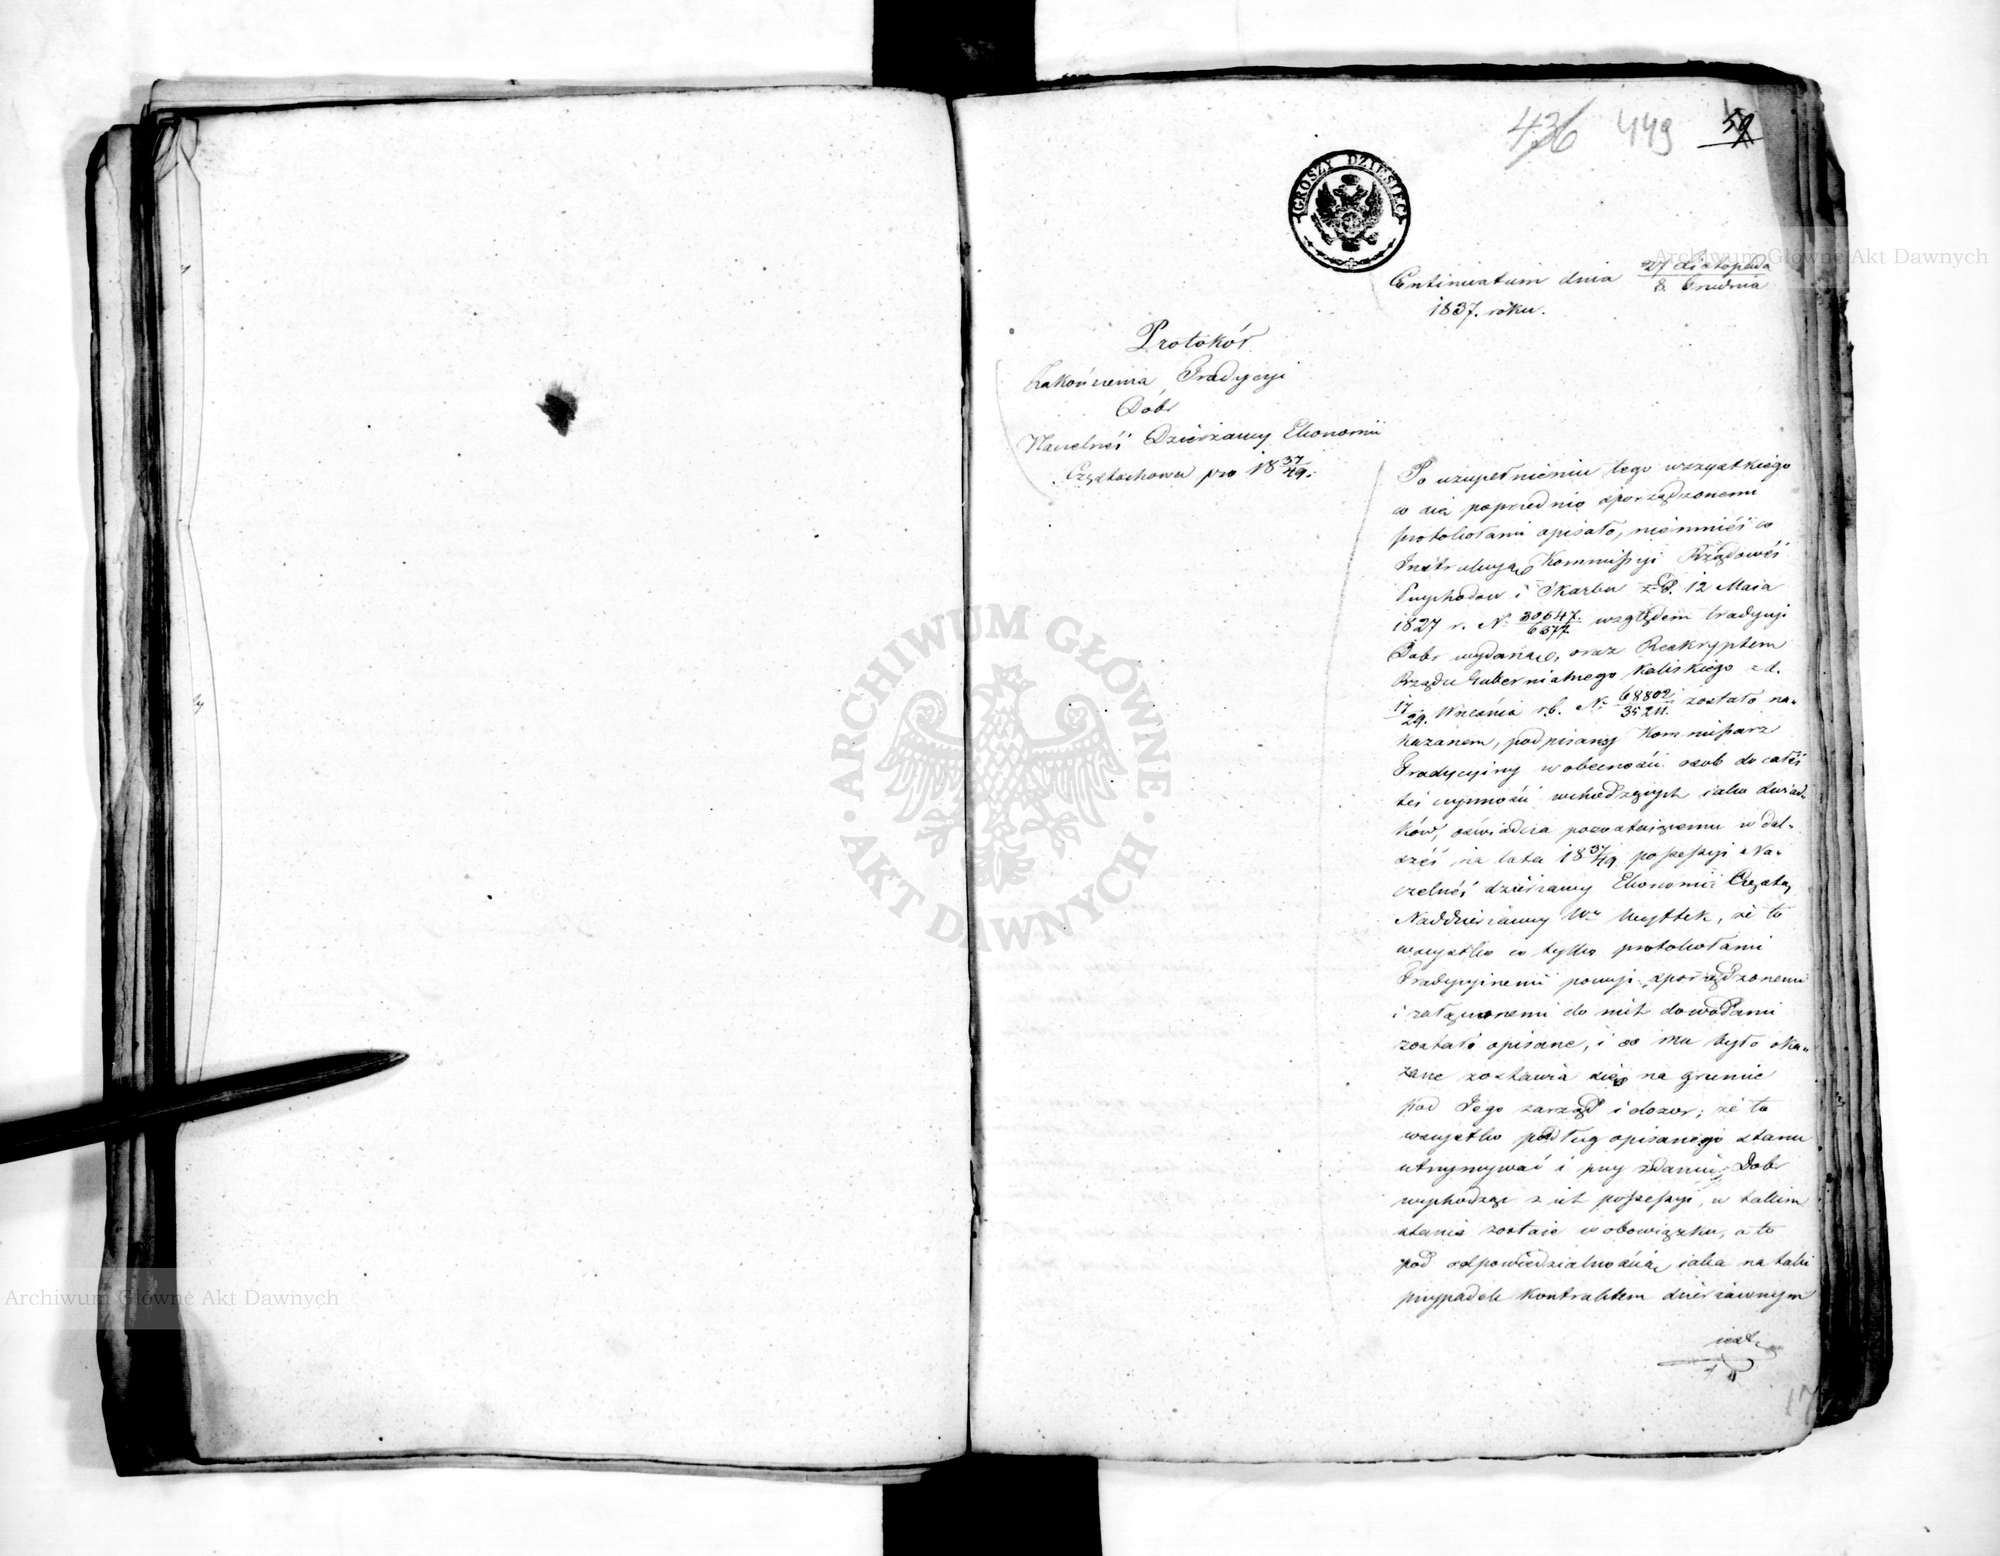 436 449 59
GROSZY DZIESIĘĆ
Continuatum dnia 27 Listopada / 8. Grudnia
1837. roku.
Protokół
Zakończenia Tradycyi
Dóbr
Naczelnéj Dzierżawy Ekonomii
Częstochowa pro 18 37/49.
Po uzupełnieniu tego wszystkiego
co się poprzednio sporządzonemi
protokołami opisało, niemniéj co
Instrukcyą Kommissyi Rządowéj
Przychodów i Skarbu z d. 12 Maia
1827 r. N. 30547/6377. względem tradycyi
Dóbr wydaną, oraz Reskryptem
Rządu Gubernialnego Kaliskiego z d.
17/29. Września r.b. N. 68802/35211. zostało na-
kazanem, podpisany Kommissarz
Tradycyiny w obecności osób do całéj
téj czynności wchodzących iako świad-
ków, oświadcza pozostaiącemu w dal-
széj na lata 18 37/49 possessyi Na-
czelnéj dzierżawy Ekonomii Częstoch.
Naddzierżawcy Wu, że to
wszystko co tylko protokołami
Tradycyinemi powyż. sporządzonemi
i załączonemi do nich dowodami
zostało opisane, i co mu było oka-
zane zostawia się na gruncie
pod Jego zarząd i dozor; że to
wszystko podług opisanego stanu
utrzymywać i przy zdaniu Dóbr
wychodząc z ich possessyi, w takim
stanie zostaie w obowiązku, a to
pod odpowiedzialnością iaka na taki
przypadek Kontraktem dzierżawnym
iest
17
ARCHIWUM GŁÓWNE AKT DAWNYCH
Archiwum Główne Akt Dawnych
Archiwum Główne Akt Dawnych